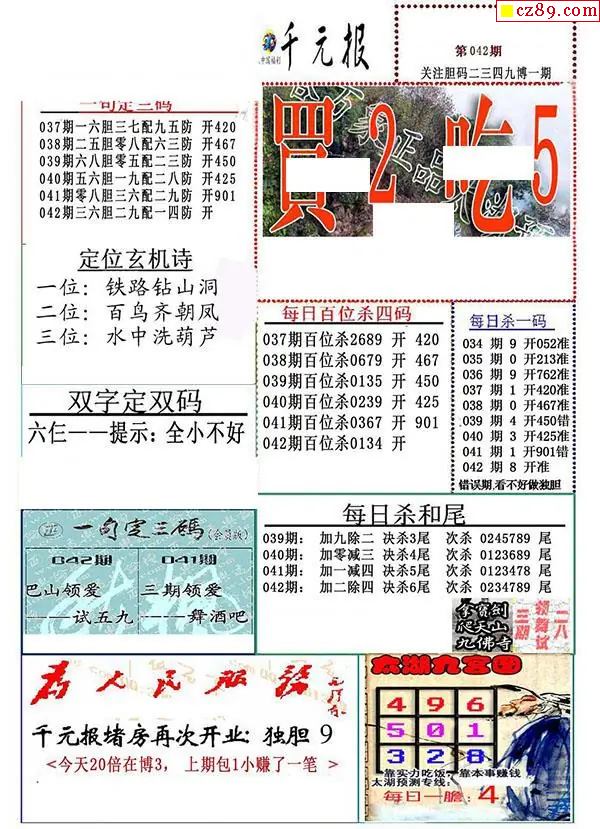 cz89.com
中国福利
千元报
第042期
关注胆码二三四九博一期
一句定三码
037期一六胆三七配九五防 开420
038期二五胆零八配六三防 开467
039期六八胆零五配二三防 开450
040期五六胆一九配二八防 开425
041期零八胆三六配二九防 开901
042期三六胆二九配一四防 开
買2吃5
定位玄机诗
一位：铁路钻山洞
二位：百鸟齐朝凤
三位：水中洗葫芦
每日百位杀四码
037期百位杀2689 开 420
038期百位杀0679 开 467
039期百位杀0135 开 450
040期百位杀0239 开 425
041期百位杀0367 开 901
042期百位杀0134 开
每日杀一码
034 期 9 开052准
035 期 0 开213准
036 期 9 开762准
037 期 1 开420准
038 期 0 开467准
039 期 4 开450错
040 期 3 开425准
041 期 1 开901错
042 期 8 开准
错误期,看不好做独胆
双字定双码
六仨——提示：全小不好
每日杀和尾
039期： 加九除二 决杀3尾 次杀 0245789 尾
040期： 加零减三 决杀4尾 次杀 0123689 尾
041期： 加一减四 决杀5尾 次杀 0123478 尾
042期： 加二除四 决杀6尾 次杀 0234789 尾
一句定三碼(会员版)
042期
巴山领爱
——试五九
041期
三期领爱
——舞酒吧
拿寶劍
爬天山
九佛寺
三期
二八
为人民服务
千元报堵房再次开业：独胆 9
<今天20倍在博3， 上期包1小赚了一笔 >
太湖九宫图
4 9 6
5 0 1
3 2 8
靠实力吃饭，靠本事赚钱
太湖预测专线：
每日一胆：4